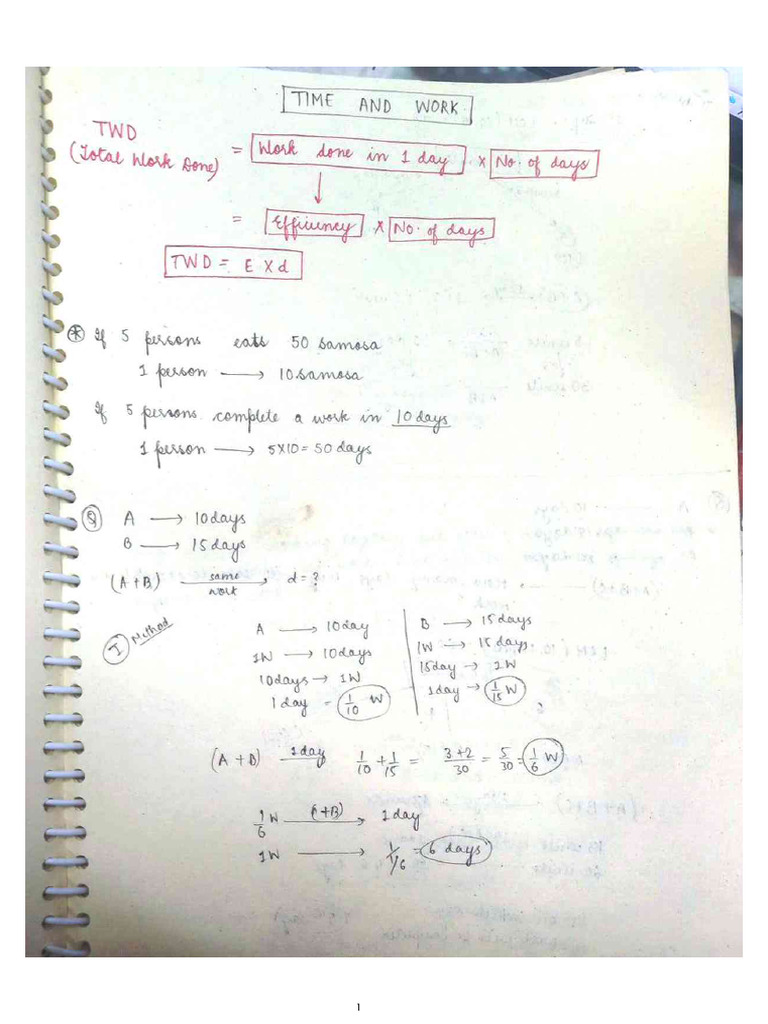 TIME AND WORK
TWD
(Total Work Done) = Work done in 1 day × No. of days
↓
= Efficiency × No. of days
TWD = E × d
* If 5 persons eats 50 samosa
1 person → 10 samosa
If 5 persons complete a work in 10 days
1 person → 5×10 = 50 days
Q A → 10 days
B → 15 days
(A+B) same work → d = ?
I Method
A → 10 day
1W → 10 days
10 days → 1W
1 day = 1/10 W
B → 15 days
1W → 15 days
15 day → 1W
1 day → 1/15 W
(A+B) 1 day 1/10 + 1/15 = 3+2/30 = 5/30 = 1/6 W
1/6 W (A+B) → 1 day
1W → 1/1/6 = 6 days
1